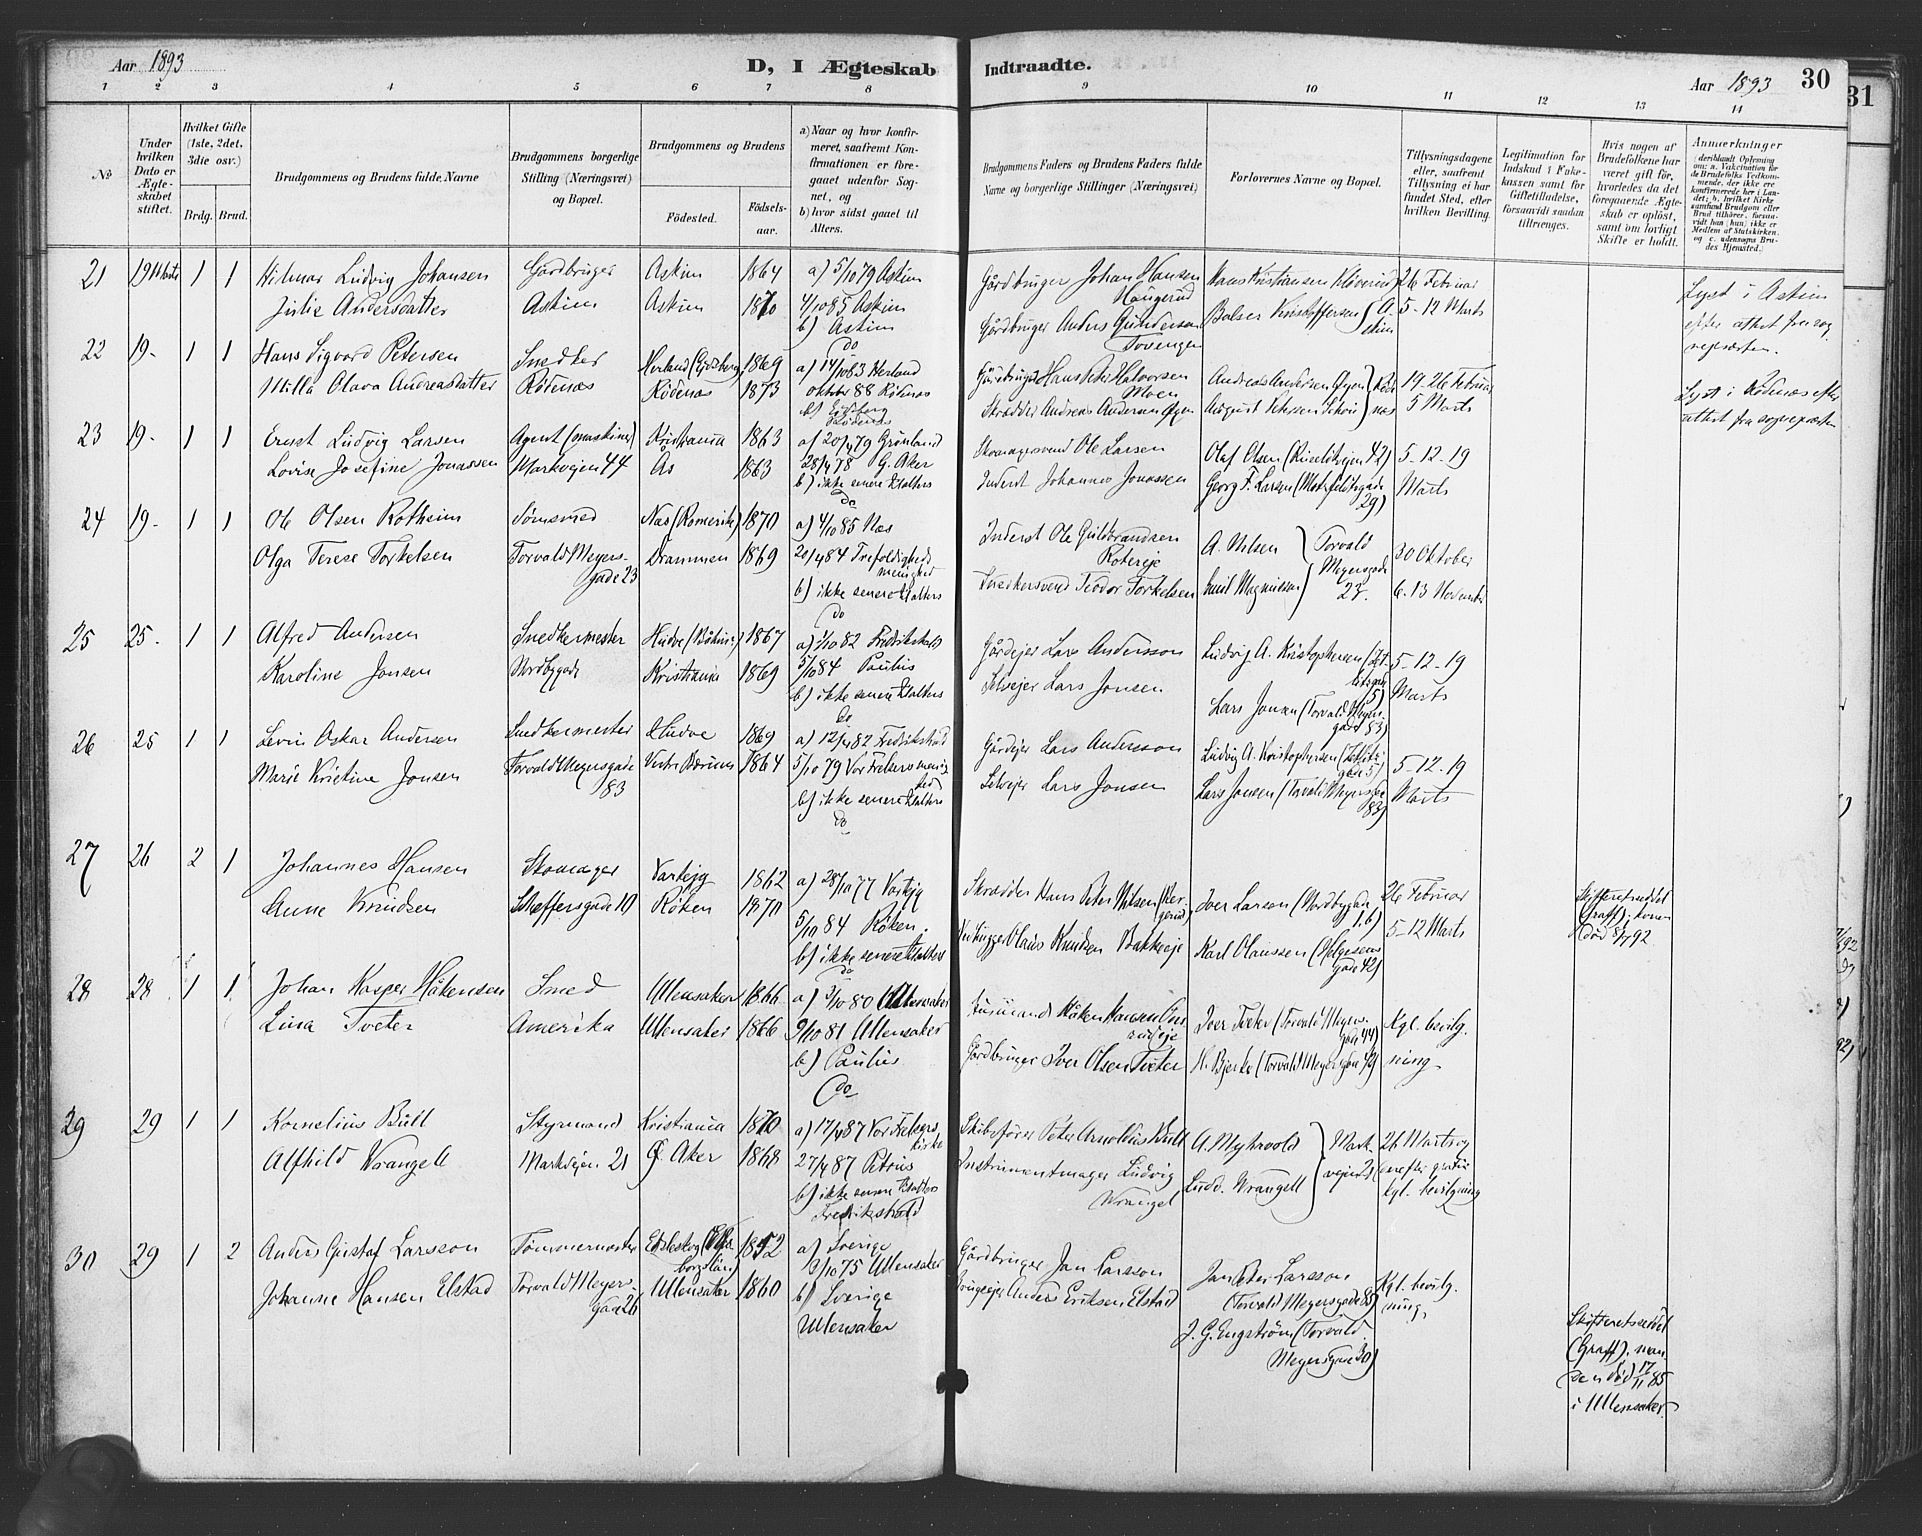 Aar 1893
D, I Ægteskab Indtraadte.
Aar 1893 30
31
1 2 3 4 5 6 7 8 9 10 11 12 13 14
No
Under hvilken Dato er Ægteskabet stiftet.
Hvilket Gifte (1ste, 2det, 3die osv.)
Brdg. Brud.
Brudgommens og Brudens fulde Navne
Brudgommens borgerlige Stilling (Næringsvei) og Bopæl.
Brudgommens og Brudens
Födested.
Födsels-aar.
a) Naar og hvor konfirmeret, saafremt Konfirmationen er foregaaet udenfor Sognet, og
b) hvor sidst gaaet til Alters.
Brudgommens Faders og Brudens Faders fulde Navne og borgerlige Stillinger (Næringsvei)
Forlovernes Navne og Bopæl.
Tillysningsdagene eller, saafremt Tillysning ei har fundet Sted, efter hvilken Bevilling.
Legitimation for Indskud i Enkekassen samt for Giftetilladelse, forsaavidt saadan tiltrænges.
Hvis nogen af Brudefolkene har været gift för, hvorledes da det foregaaende Ægteskab er oplöst, samt om lovligt Skifte er holdt.
Anmærkninger
21 19 Marts 1 1 Hilmar Ludvig Johansen Gårdbruger Askim 1864 a) 5/10 79 Askim Gårdbruger Johan Hansen Haugerud Hans Kristiansen Kloverud 26 Februar
Julie Andersdatter Askim Askim 1870 4/10 85 Askim Gårdbruger Anders Gundersen Tovengen Balser Kristoffersen } Askim 5-12 Marts
b) Askim
do
Lyst i Askim efter attest fra sognepresten.
22 19- 1 1 Hans Sigvard Petersen Snedker Herland (Eidsberg) 1869 a) 14/10 83 Herland Gårdbruger Hans Peter Halvorsen Moen Andreas Andersen Øyen 19-26 Februar
Milla Olava Andreasdatter Rödenæs Rödenæs 1873 oktober 88 Rödenæs Skrædder Andreas Andersen Øyen August Petersen } Rödenæs 5 Marts
b) Eidsberg
Rödenæs
Lyst i Rödenæs efter attest fra sognepresten
23 19- 1 1 Ernst Ludvig Larsen Agent (maskiner) Kristiania 1863 a) 20/4 79 Grönland Skomagersvend Ole Larsen Olaf Olsen 42) 5-12-19
Lovise Josefine Jonassen Markvejen 44 Ås 1863 28/4 78 G. Aker Inderst Johannes Jonassen Georg F. Larsen 29) Marts
b) ikke senere til alters
do
24 19- 1 1 Ole Olsen Rotheim Tömsmed Næs (Romerike) 1870 a) 4/10 85 Næs Inderst Ole Guldbrandsen A. Nilsen } Torvald Meyersgade 27. 30 Oktober
Olga Terese Torkelsen Torvald Meyers-gade 23 Drammen 1869 20/4 84 Trefoldigheds menighed Snedkersvend Teodor Torkelsen Emil Magnussen 6-13 November
b) ikke senere til alters
do
25 25- 1 1 Alfred Andersen Snedkermester Hudve 1867 a) 1/10 82 Fredrikshald Gårdejer Lars Andersson Ludvig A. Kristophersen 5) 5-12-19
Karoline Jonsen Nordbygade Kristiania 1869 5/10 84 Paulus Selvejer Lars Jonsen Lars Jonsen (Torvald Meyers-gade 53) Marts
b) ikke senere til alters
do
26 25 1 1 Levin Oskar Andersen Snedkermester Hudve 1869 a) 12/4 82 Fredrikstad Gårdejer Lars Andersson Ludvig A. Kristophersen 5) 5-12-19
Marie Kristine Jonsen Torvald Meyersgade 83 Vestre Bærum 1864 5/10 79 Vor Frelsers menighed Selvejer Lars Jonsen Lars Jonsen (Torvald Meyersgade 83) Marts
b) ikke senere til alters
do
27 26 2 1 Johannes Hansen Skomager Varteig 1862 a) 28/10 77 Varteig Skrædder Hans Peter Nilsen Iver Larson (Nordbygade 16) 26 Februar
Anne Knudsen Scheffersgade 10 Röken 1870 5/10 84 Röken. Olaus Knudsen Bakkeeje Karl Olaussen (Helgesens gade 42) 5-12 Marts
b) ikke senere til alters
do
Skifteretsseddel (Graff), konen död 8/7 92
28 28 1 1 Johan Kasper Håkensen Smed Ullensaker 1866 a) 3/10 80 Ullensaker Husmand Håken Hansen Iver Tveter (Torvald Meyers-gade 44) Kgl. bevilg-
Lina Tveter Amerika Ullensaker 1866 9/10 81 Ullensaker Gårdbruger Iver Olsen Tveter H. Bjerke (Torvald Meyersgade 49 ning
b) Paulus
do
29 29 1 1 Kornelius Bull Styrmand Kristiania 1870 a) 17/4 87 Vor Frelsers kirke Skibsförer Peter Arnoldus Bull A. Myhrvold } Markvejen 21 26 Marts og
Alfhild Wrangell Markvejen 21 Ø. Aker 1868 27/4 87 Petrus Instrumentmager Ludvig Wrangel Ludv. Wrangell derefter gratis kgl. bevilgning
b) ikke senere til alters
Fredrikshald
30 29 1 2 Anders Gustaf Larsson Tömmermester Edsleskog (Elfsborgs län) 1852 a) Sverige Gårdbruger Jan Larsson Jan Peter Larsson (Torvald Meyersgade 85) Kgl. bevilg-
Johanne Hansen Elstad Torvald Meyers-gade 26 Ullensaker 1860 3/10 75 Ullensaker Brugejer Anders Eriksen Elstad J. G. Engström (Torvald Meyersgade 30) ning
b) Sverige
Ullensaker
Skifteretsseddel (Graff), manden död 17/11 85 i Ullensaker.